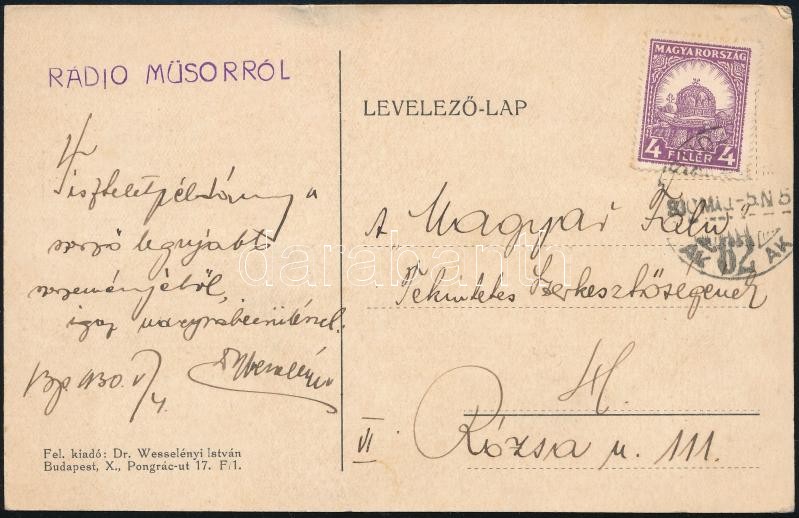 RÁDIO MŰSORRÓL
Tiszteletpéldány a
szerző legujabb
szerzeményéből,
igaz nagyrabecsüléssel.
Bp 930. V/4.
Fel. kiadó: Dr. Wesselényi István
Budapest, X., Pongrác-ut 17. F/1.
LEVELEZŐ-LAP
MAGYARORSZÁG
4 FILLÉR 4
A "Magyar Falu"
Tekintetes Szerkesztőségének
VI
Rózsa u. 111.
62
darabanth